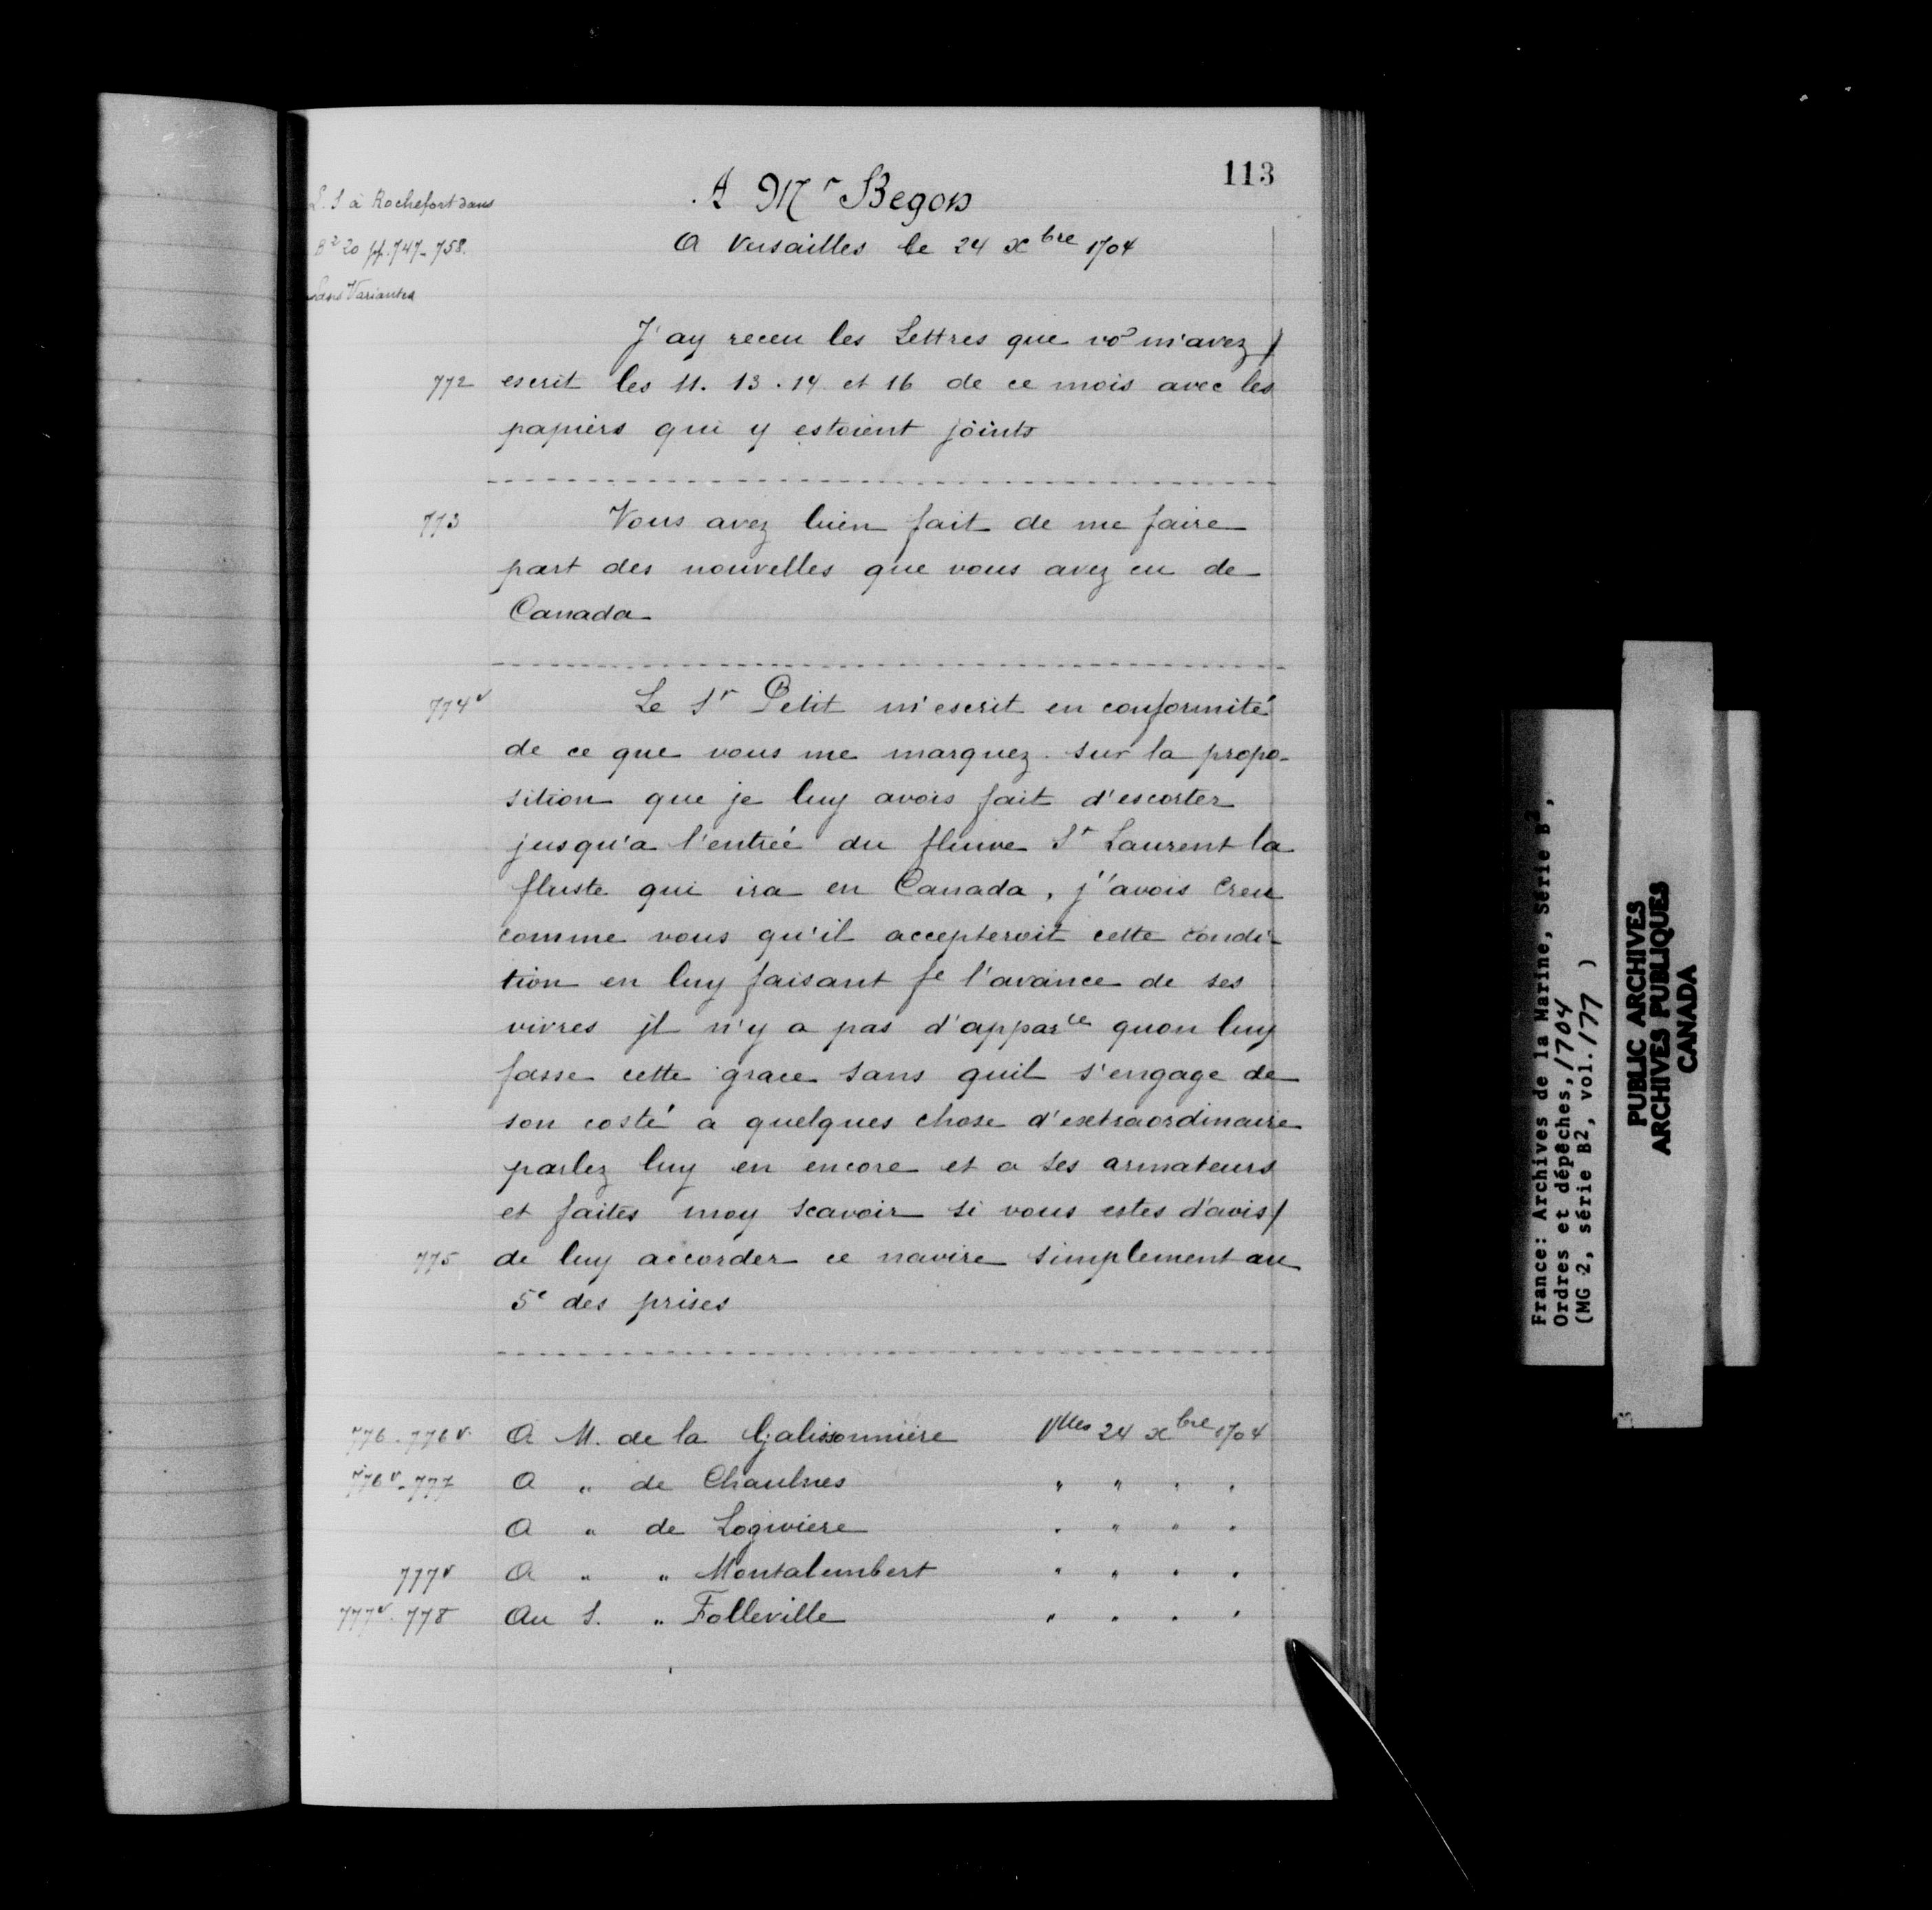 113
L. S à Rochefort dans
B² 20 pp. 747-758.
Sans Variantes
A Mr Begon
A Versailles le 24 xbre 1704
J'ay receu les Lettres que vo m'avez /
772 escrit les 11. 13. 14 et 16 de ce mois avec les
papiers qui y estoient joints
773 Vous avez bien fait de me faire
part des nouvelles que vous avez eu de
Canada
774v Le Sr Petit m'escrit en conformité
de ce que vous me marquez sur la propo-
sition que je luy avois fait d'escorter
jusqu'a l'entrée du fleuve St Laurent la
fluste qui ira en Canada, j'avois creu
comme vous qu'il accepteroit cette condi-
tion en luy faisant fe l'avance de ses
vivres jl n'y a pas d'apparce quon luy
fasse cette grace sans quil s'engage de
son costé a quelques chose d'extraordinaire
parlez luy en encore et a ses armateurs
et faites moy scavoir si vous estes d'avis /
775 de luy accorder ce navire simplement au
5e des prises
776-776v. A M. de la Galissonnière Vlles 24 xbre 1704
776v-777 A " de Chaulnes " " " "
A " de Logiviere " " " "
777v A " " Montalembert " " " "
777v-778 Au S. " Folleville " " " "
France: Archives de la Marine, Série B²,
Ordres et dépêches, 1704
(MG 2, série B2, vol. 177 )
PUBLIC ARCHIVES
ARCHIVES PUBLIQUES
CANADA